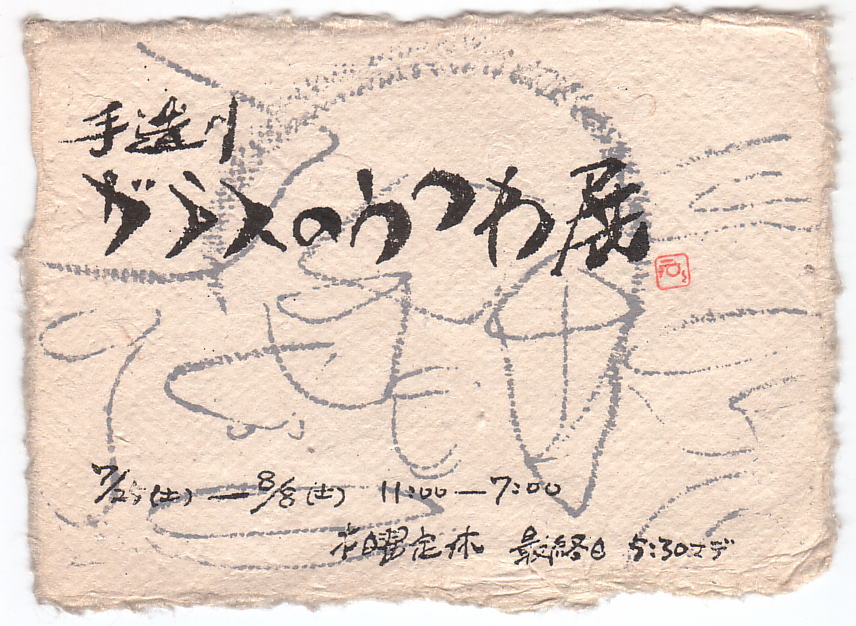 手造り
ガラスのうつわ展
7/25(土)—8/8(土) 11:00—7:00
曜定休 最終日 5:30マデ